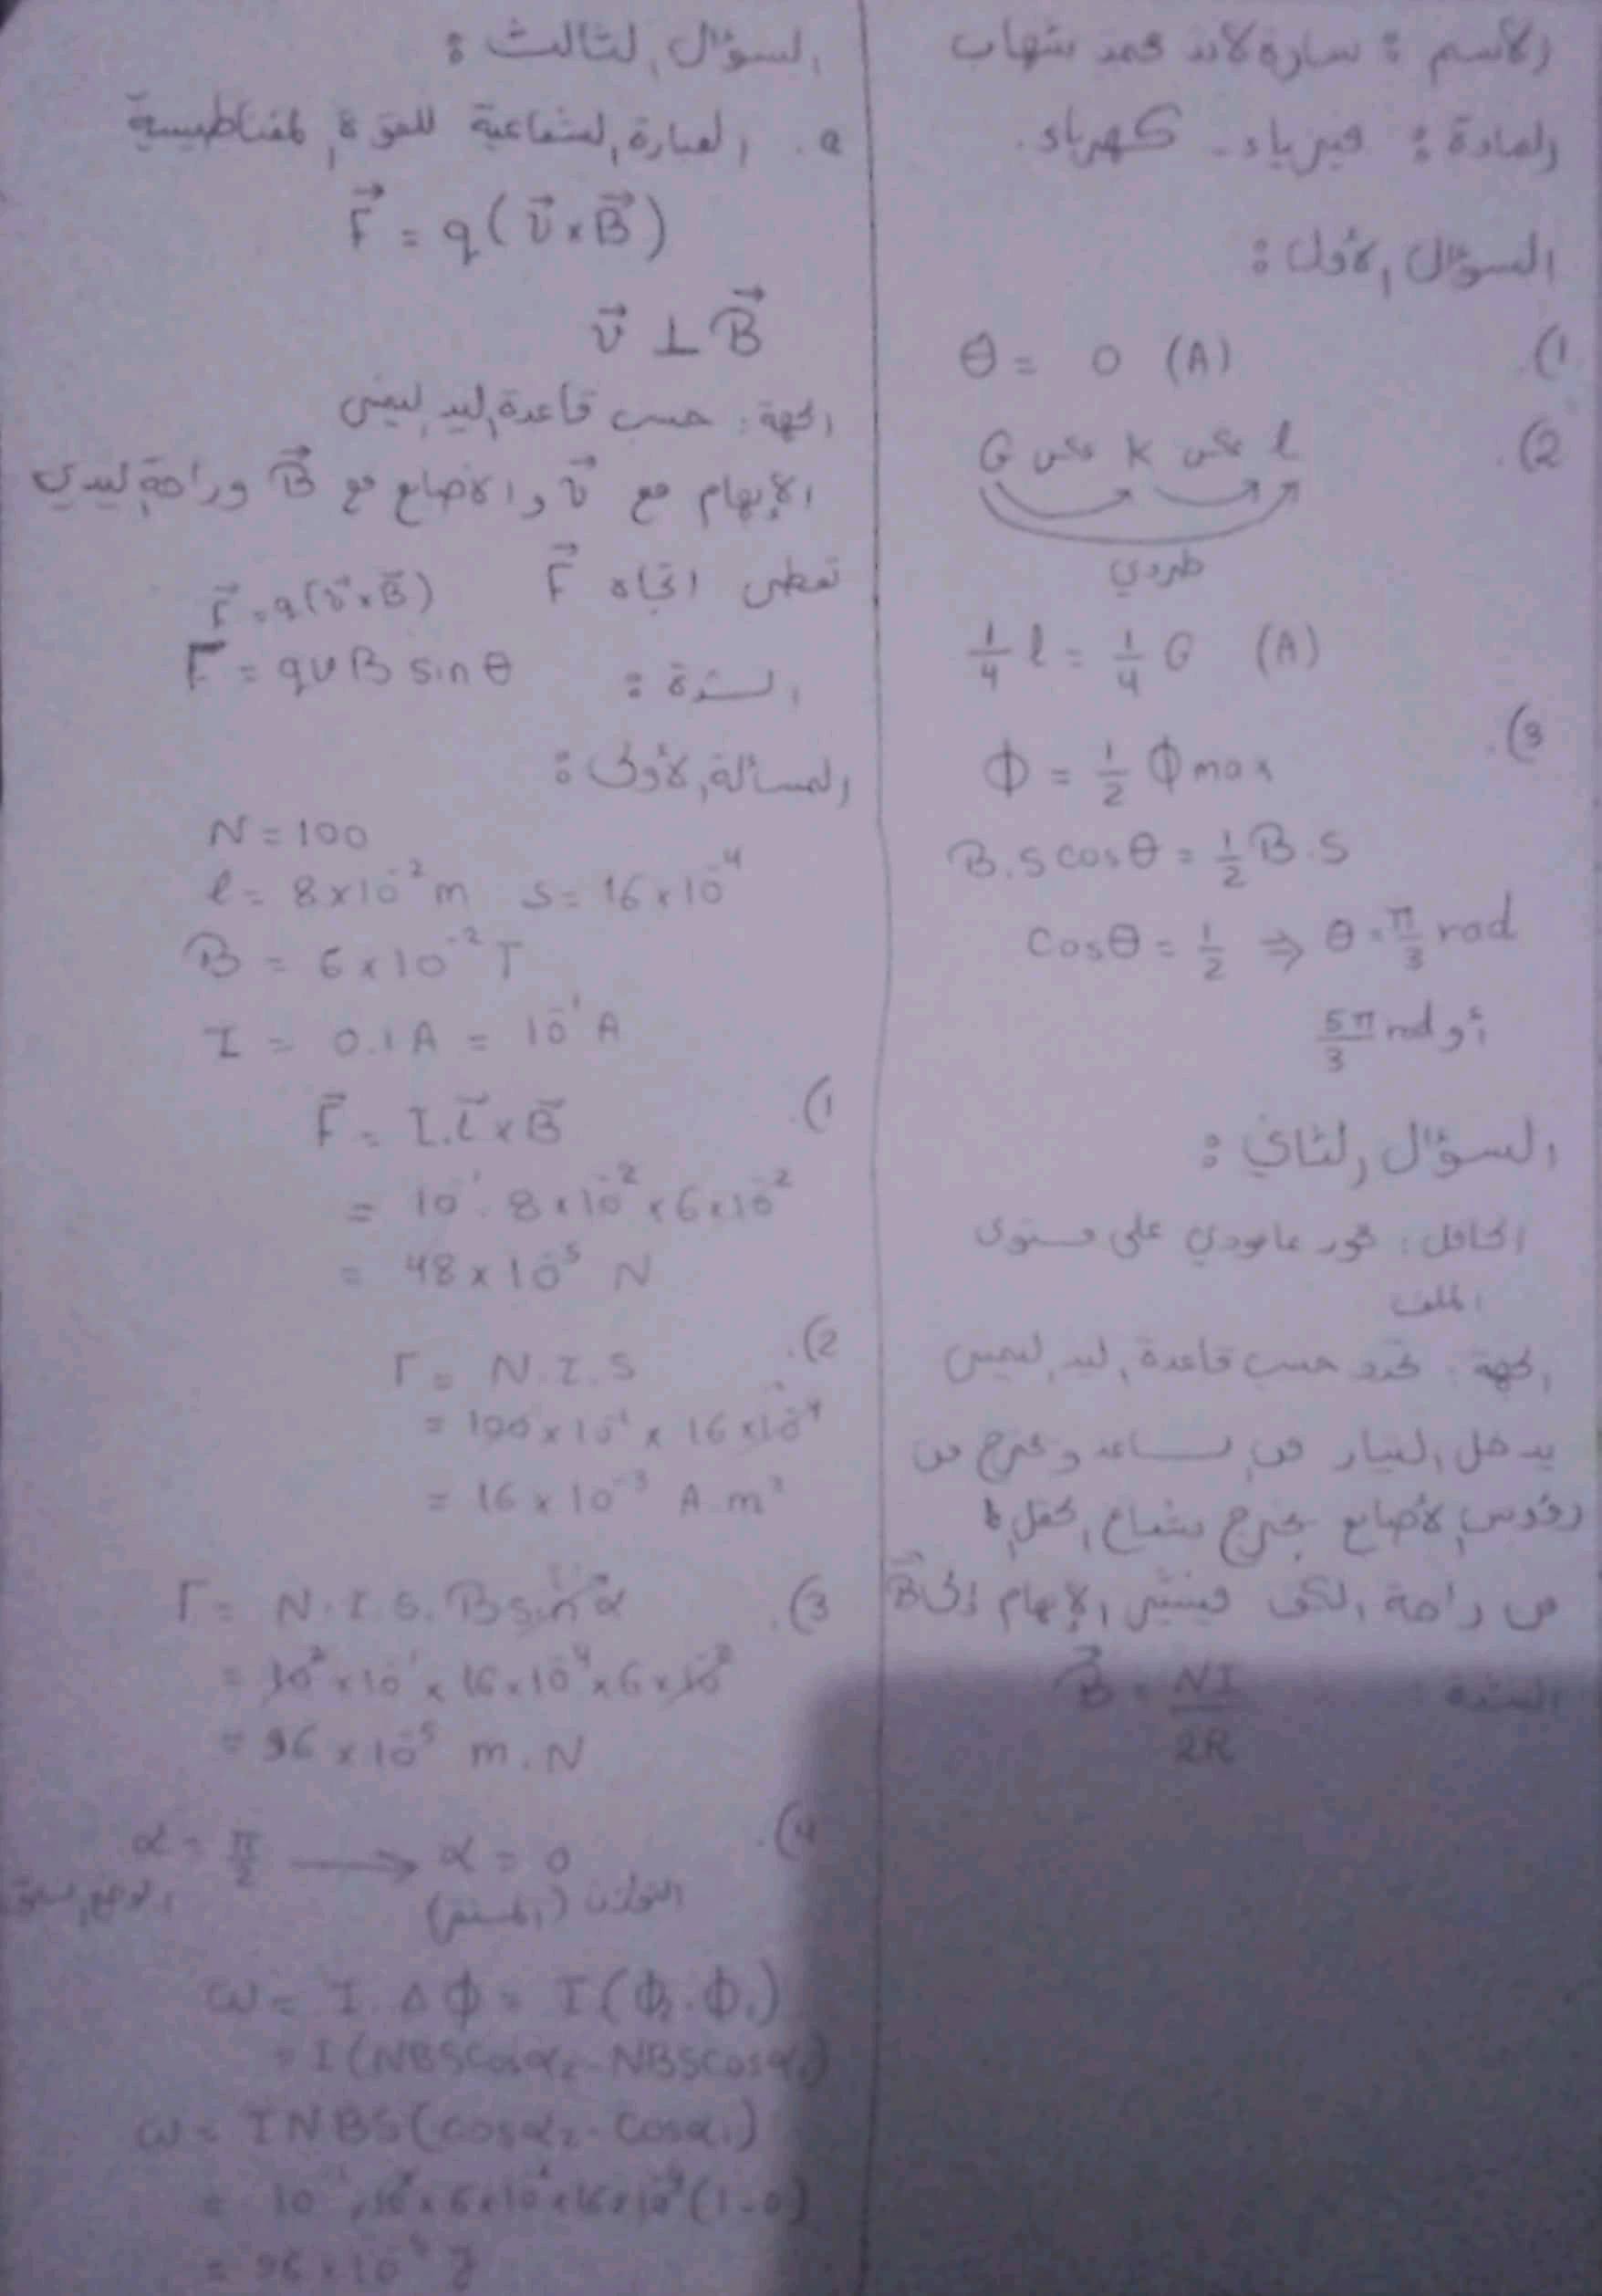 الأسم : سارة لاند محمد شهاب
المادة : فيزياء - كهرباء .
السؤال الأول :
1). θ = 0 (A)
2). G عكس K عكس l
طردي
1/4 l = 1/4 G (A)
3). Φ = 1/2 Φ max
B.S cosθ = 1/2 B.S
Cosθ = 1/2 ⇒ θ = π/3 rad
أو 5π/3 rad
السؤال الثاني :
الحامل : محور عامودي على مستوى
الملف
الجهة : تحدد حسب قاعدة اليد اليمنى
يدخل التيار من الساعد و يخرج من
رؤوس الأصابع يخرج شعاع الحقل
من راحة الكف فيشير الإبهام إلى B⃗
الشدة B⃗ = NI/2R
السؤال الثالث :
a . العبارة الشعاعية للقوة المغناطيسية
F⃗ = q(v⃗ × B⃗)
v⃗ ⊥ B⃗
الجهة : حسب قاعدة اليد اليمنى
الإبهام مع v⃗ و الاصابع مع B⃗ وراحة اليدي
تعطي اتجاه F⃗ F⃗ = q(v⃗ × B⃗)
الشدة : F = qvB sinθ
المسألة الأولى :
N = 100
l = 8×10⁻² m S = 16×10⁻⁴
B = 6×10⁻² T
I = 0.1A = 10⁻¹ A
1). F⃗ = I.L⃗ × B⃗
= 10⁻¹ . 8×10⁻² × 6×10⁻²
= 48×10⁻⁵ N
2). Γ = N.I.S
= 100×10⁻¹ × 16×10⁻⁴
= 16×10⁻³ A.m²
3). Γ = N.I.S.B sinα
= 10²×10⁻¹×16×10⁻⁴×6×10⁻²
= 96×10⁻⁵ m.N
4). α = π/2 → α = 0
التوازن (المستقر)
ω = I.ΔΦ = I(Φ₂-Φ₁)
= I(NBScosα₂ - NBScosα₁)
ω = INBS(cosα₂ - cosα₁)